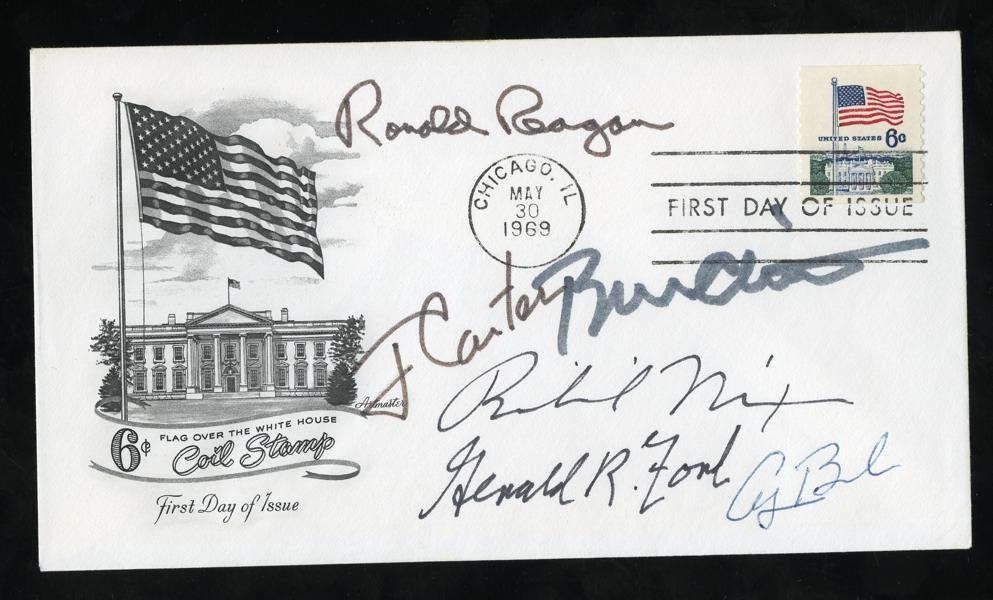 Ronald Reagan
UNITED STATES 6c
CHICAGO, IL
MAY
30
1969
FIRST DAY OF ISSUE
J Carter
Richard Nixon
Gerald R. Ford
Artmaster
6¢ FLAG OVER THE WHITE HOUSE
Coil Stamp
First Day of Issue